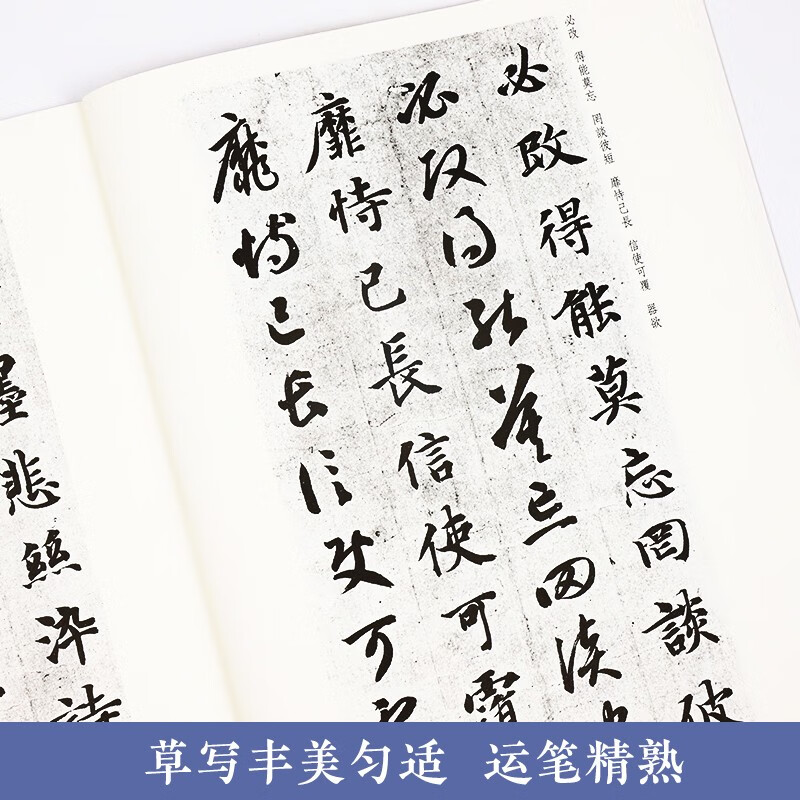 必改 得能莫忘 罔談彼短 靡恃己長 信使可覆 器欲
必改得能莫忘罔談彼
必改得能莫忘罔談
靡恃己長信使可覆
靡恃己長信使可
墨悲絲染詩
草写丰美匀适 运笔精熟